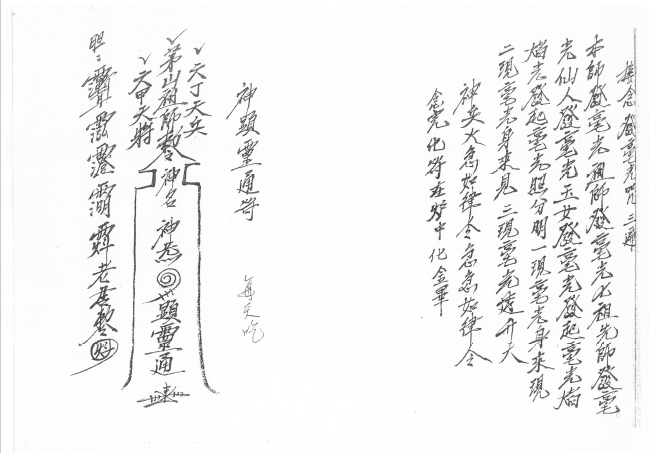 接念發毫光咒三遍
本師發毫光祖師發毫光七祖先師發毫
光仙人發毫光玉女發毫光發起毫光焰
焰光發起毫光照分明一現毫光身來現
二現毫光身來見三現毫光透升天
神兵火急如律令急急如律令
念完化符在炉中化金畢
神顯靈通符
每天吃
六丁天兵
茅山祖師勅令神名神志
顯靈通
六甲天將
老君勅令